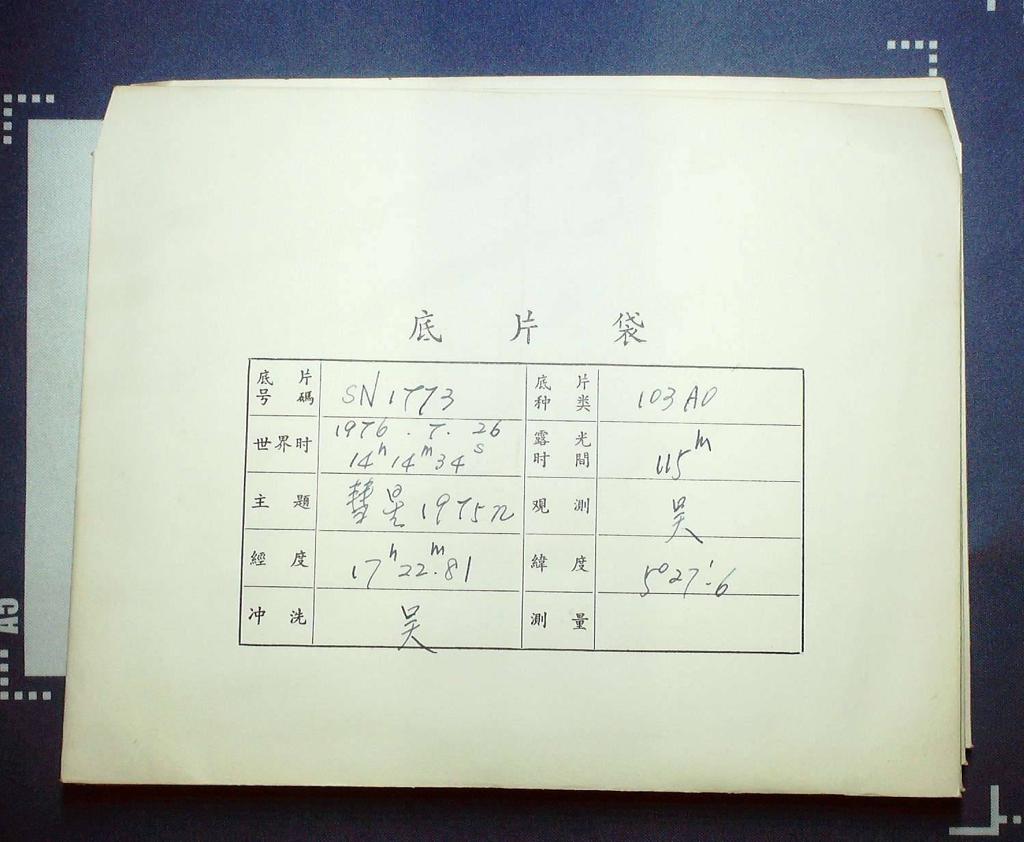 底 片 袋
底片号碼 SN1773 底片种类 103AO
世界时 1976.7.26 14h14m34s 露光时間 115m
主題 彗星1975n 观測 吴
經度 17h22m.81 緯度 5°27′.6
冲洗 吴 測量